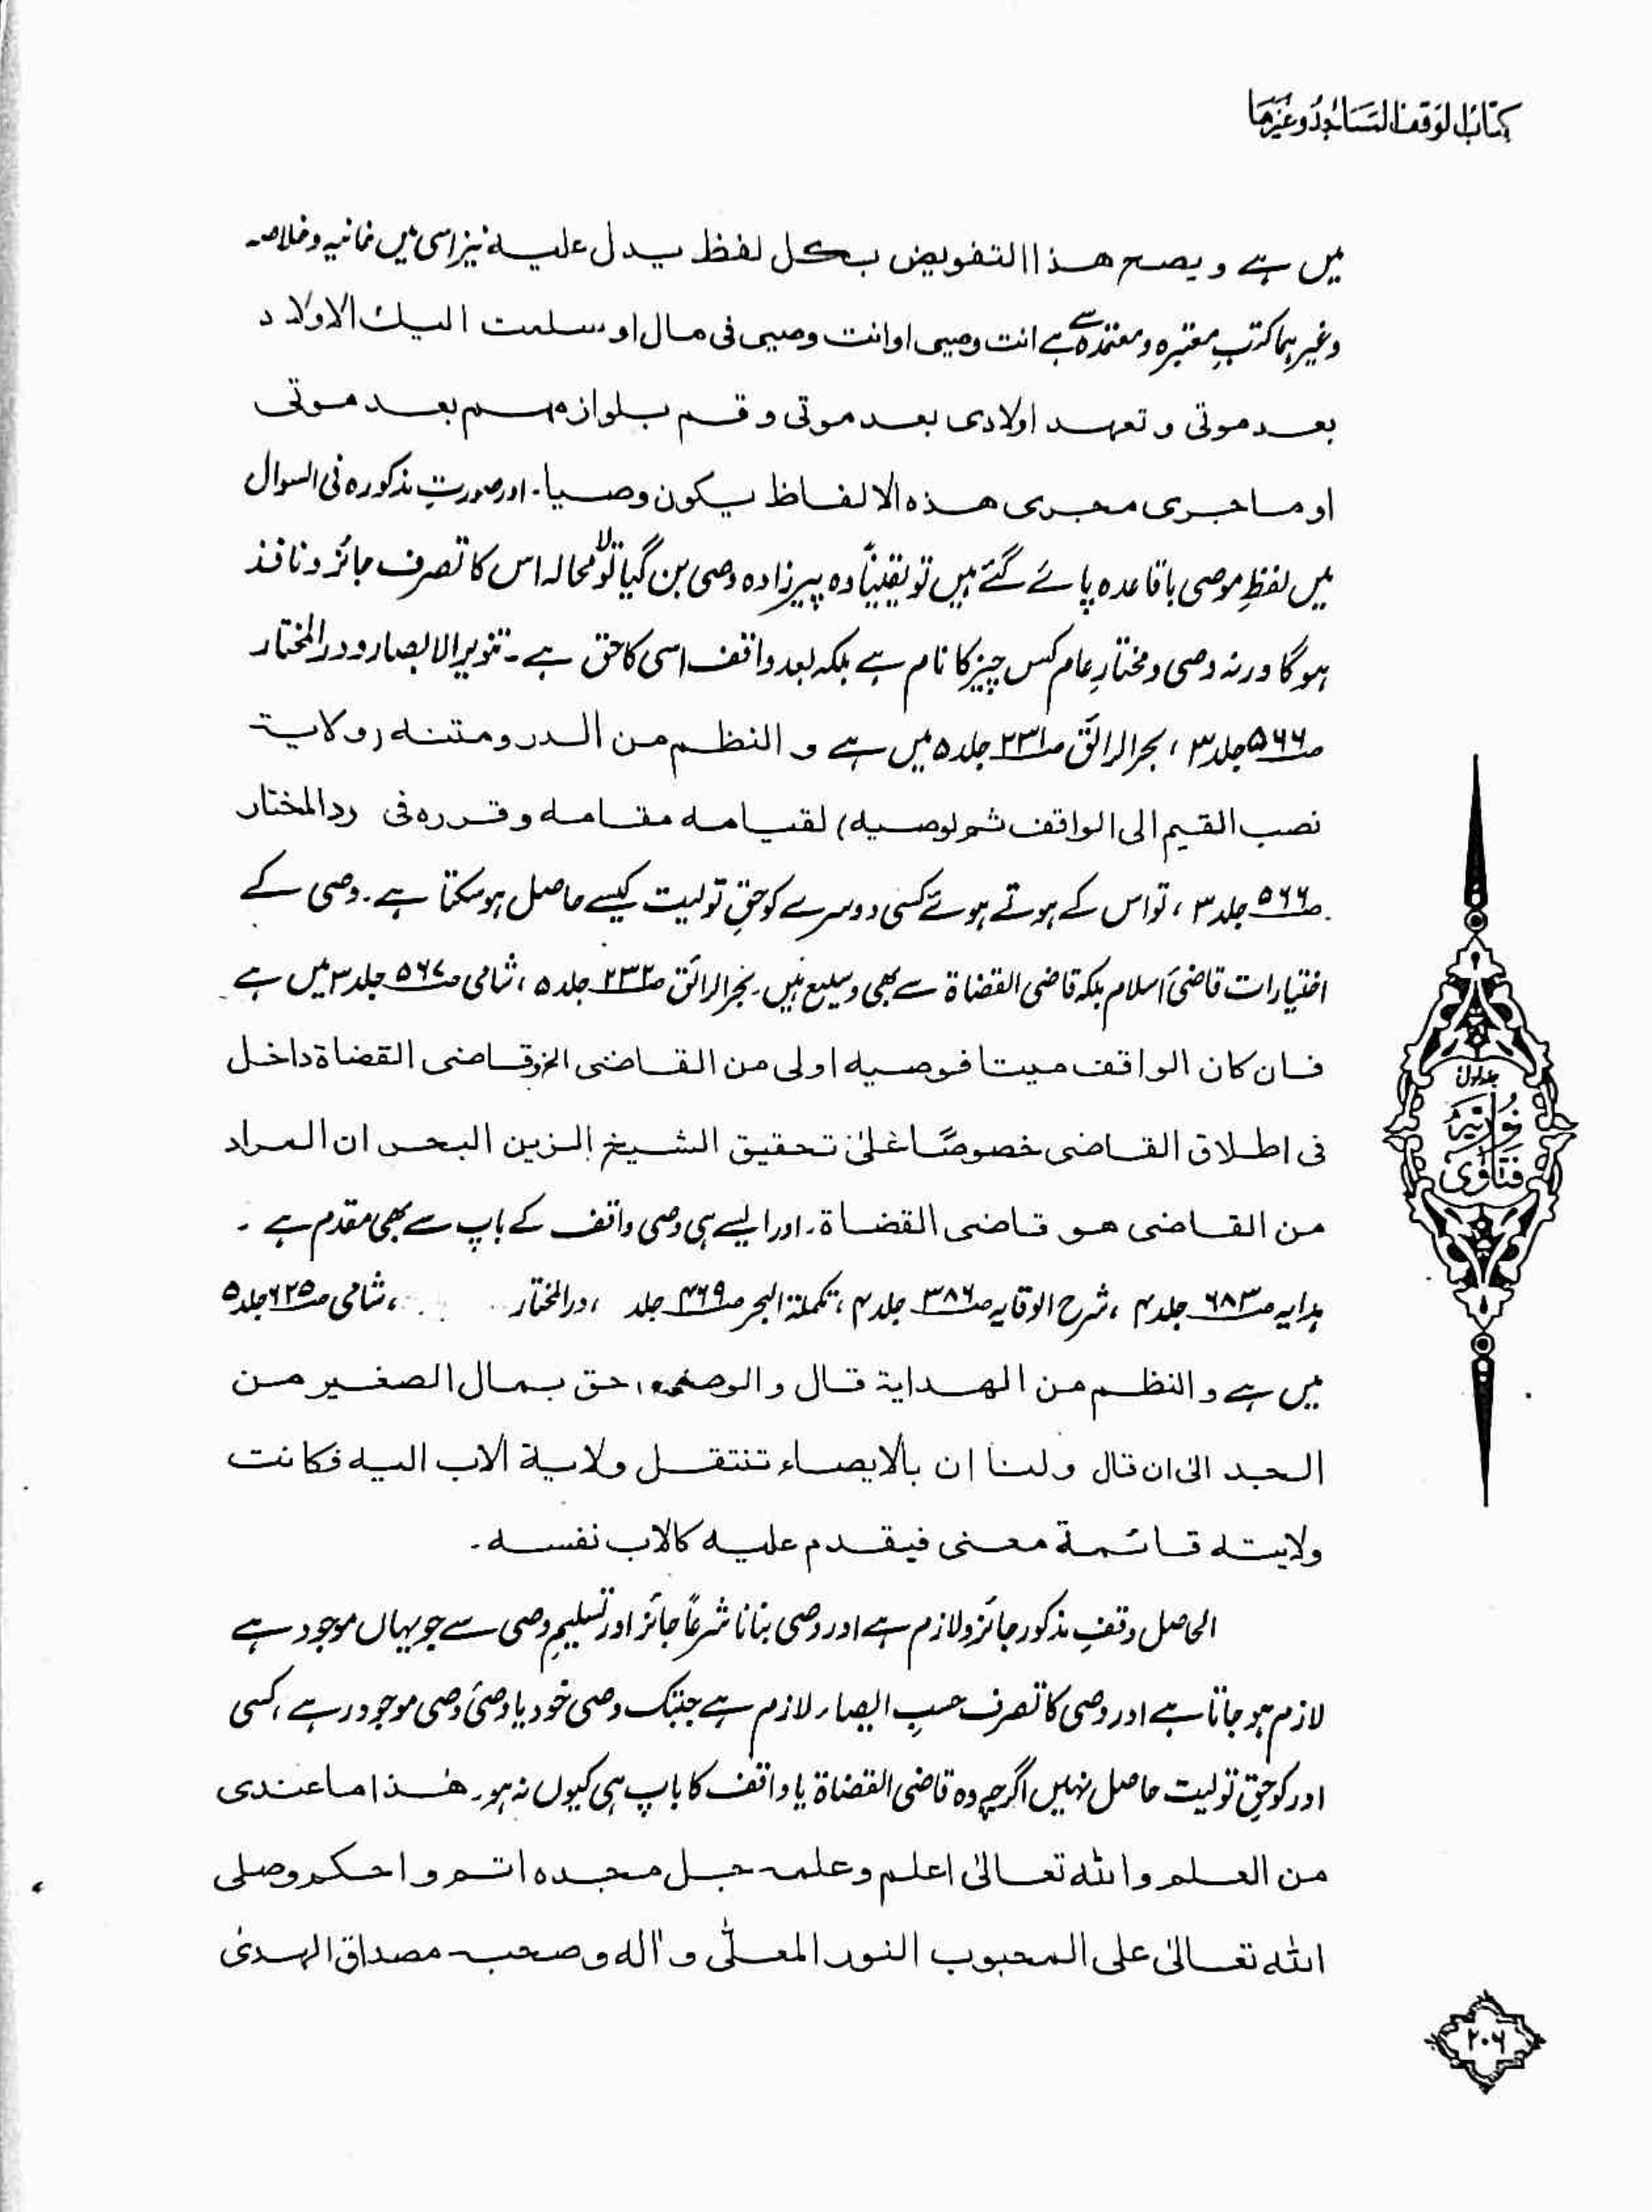 کتاب الوقف المساجد وغیرھا
میں ہے و یصح ھذا التفویض بکل لفظ یدل علیہ نیز اسی میں خانیہ و خلاصہ
وغیرہما کتبِ معتبرہ و معتمدہ سے ہے انت وصیی او انت وصیی فی مال او سلمت الیک الاولاد
بعد موتی و تعھد اولادی بعد موتی و قم بلوازمھم بعد موتی
او ما جری مجری ھذہ الالفاظ یکون وصیا۔ اور صورتِ مذکورہ فی السوال
میں لفظِ موصی باقاعدہ پائے گئے ہیں تو یقیناً وہ پیرزادہ وصی بن گیا تو لامحالہ اس کا تصرف جائز و نافذ
ہو گا ورنہ وصی و مختارِ عام کس چیز کا نام ہے بلکہ بعد واقف اسی کا حق ہے۔ تنویر الابصار و در المختار
صـ۵۶۶ جلد ۳ ، بحر الرائق صـ۲۳۱ جلد ۵ میں ہے و النظم من الدر و متنہ (ولایۃ
نصب القیم الی الواقف ثم لوصیہ) لقیامہ مقامہ و قررہ فی رد المختار
صـ۵۶۶ جلد ۳ ، تو اس کے ہوتے ہوئے کسی دوسرے کو حقِ تولیت کیسے حاصل ہو سکتا ہے۔ وصی کے
اختیارات قاضیٔ اسلام بلکہ قاضی القضاۃ سے بھی وسیع ہیں۔ بحر الرائق صـ۲۳۲ جلد ۵ ، شامی صـ۵۶۷ جلد ۳ میں ہے
فان کان الواقف میتا فوصیہ اولی من القاضی الخ و قاضی القضاۃ داخل
فی اطلاق القاضی خصوصًا علیٰ تحقیق الشیخ الزین البحر ان المراد
من القاضی ھو قاضی القضاۃ۔ اور ایسے ہی وصی واقف کے باپ سے بھی مقدم ہے ۔
ہدایہ صـ۶۸۳ جلد ۴ ، شرح الوقایہ صـ۳۸۶ جلد ۴ ، تکملۃ البحر صـ۴۶۹ جلد ، در المختار ، شامی صـ۶۲۵ جلد ۵
میں ہے و النظم من الھدایۃ قال و الوصی احق بمال الصغیر من
الجد الیٰ ان قال و لنا ان بالایصاء تنتقل ولایۃ الاب الیہ فکانت
ولایتہ قائمۃ معنی فیقدم علیہ کالاب نفسہ۔
الحاصل وقفِ مذکور جائز و لازم ہے اور وصی بنانا شرعاً جائز اور تسلیمِ وصی سے جو یہاں موجود ہے
لازم ہو جاتا ہے اور وصی کا تصرف حسبِ ایصاء لازم ہے جبتک وصی خود یا وصیٔ وصی موجود رہے ، کسی
اور کو حقِ تولیت حاصل نہیں اگرچہ وہ قاضی القضاۃ یا واقف کا باپ ہی کیوں نہ ہو۔ ھٰذا ما عندی
من العلم و اللہ تعالیٰ اعلم و علمہ جل مجدہ اتم و احکم و صلی
اللہ تعالیٰ علی المحبوب النور المعلّٰی و اٰلہ و صحبہ مصداق الہدیٰ
جلد اول
فتاویٰ نوریہ
۲۰۶